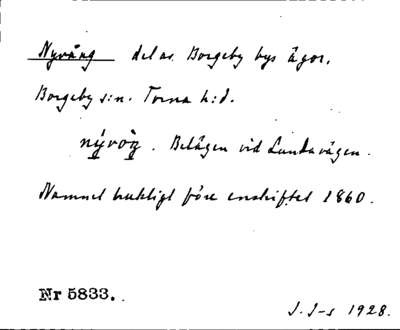 Nyvång del av Borgeby bys ägor.
Borgeby s:n. Torna h:d.
nývòŋ. Belägen vid Lundavägen.
Namnet brukligt före enskiftet 1860.
Nr 5833.
J. J-s 1928.